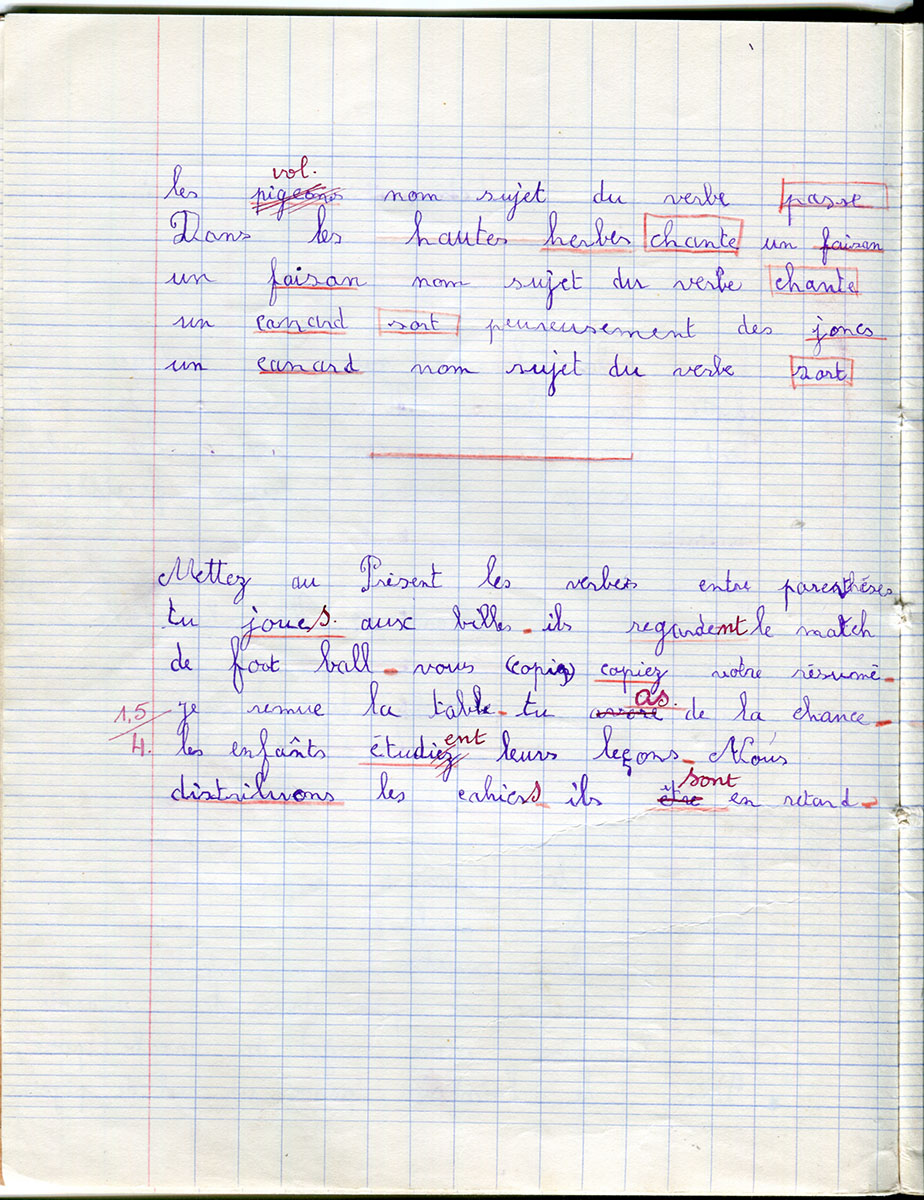 vol.
les pigeons nom sujet du verbe passe
Dans les hautes herbes chante un faisan
un faisan nom sujet du verbe chante
un canard sort peureusement des joncs
un canard nom sujet du verbe sort
Mettez au Présent les verbes entre parenthéses
tu joues. aux billes - ils regardent le match
de foot ball - vous (copier) copiez votre résumé -
as.
1,5 je remue la table - tu avoir de la chance -
ent
4. les enfânts étudiez leurs leçons - Nous
sont
distribuons les cahiers - ils être en retard -